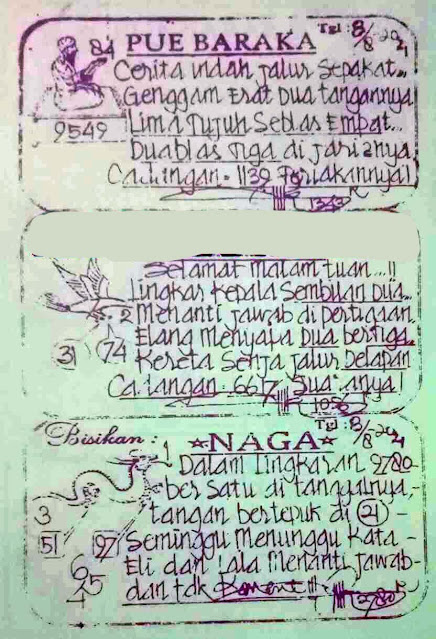 84 PUE BARAKA Tgl: 8/8-2021
Cerita indah jalur Sepakat...
Genggam Erat Dua tangannya
9549 Lima Tujuh Seblas Empat...
Duablas Tiga di jarinya
Ca. lingan. 1139
1343
Selamat malam tuan...!!
Lingkar kepala Sembilan Dua...
2 Menanti jawab di pertigaan
Elang Menyapa Dua bertiga
31 74 Kereta Senja jalur Delapan
Ca. langan. 667
1056
Bisikan: NAGA Tgl: 8/8-2021
1 Dalam lingkaran 9780-
bersatu di
3 tangan bertepuk di 21 -
51 97 Seminggu menunggu Kata -
Eli dan Lala Menanti jawab-
6 5 1 dan tak Koment!!